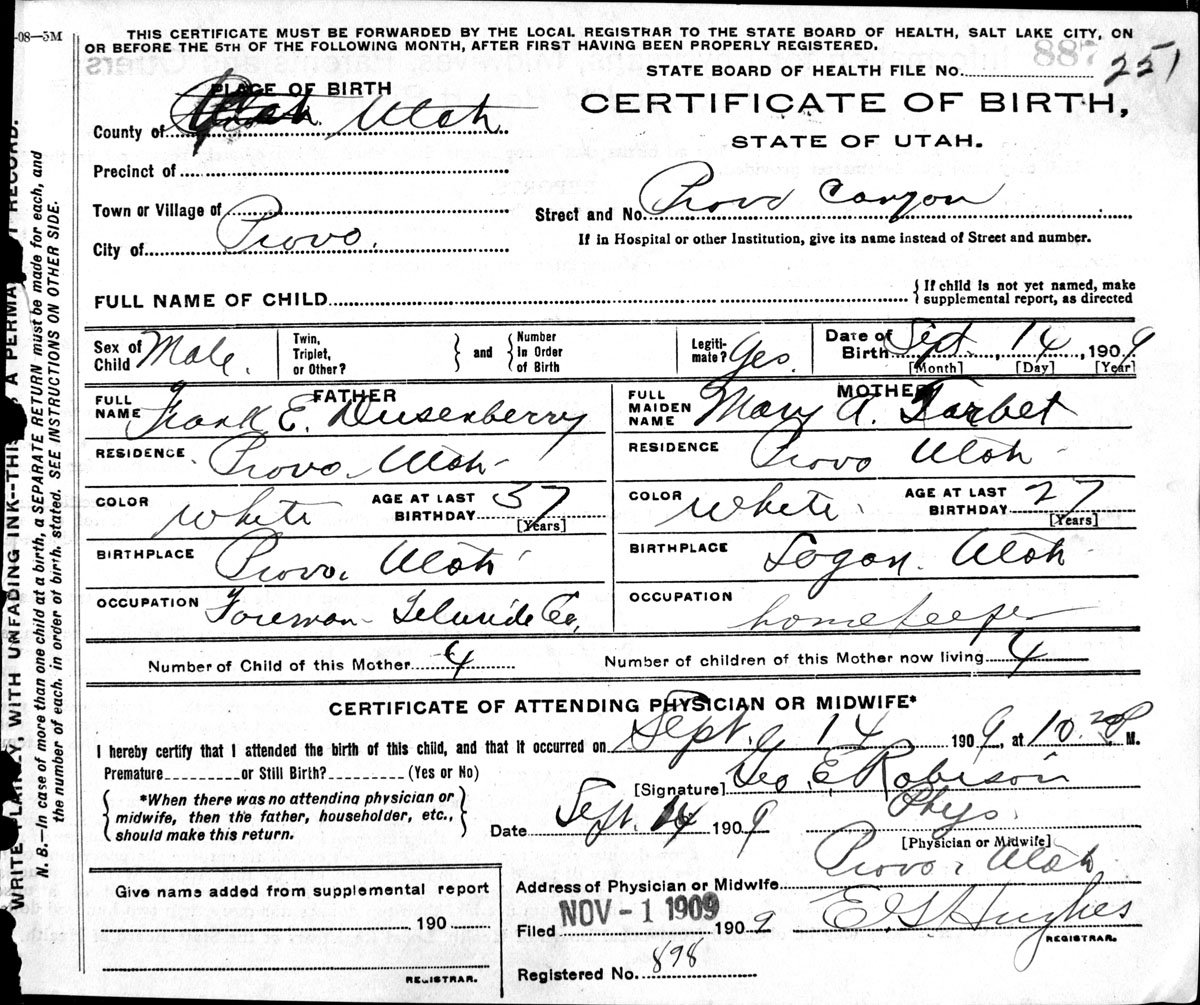 -08—3M
THIS CERTIFICATE MUST BE FORWARDED BY THE LOCAL REGISTRAR TO THE STATE BOARD OF HEALTH, SALT LAKE CITY, ON
OR BEFORE THE 5TH OF THE FOLLOWING MONTH, AFTER FIRST HAVING BEEN PROPERLY REGISTERED.
STATE BOARD OF HEALTH FILE No. 251
PLACE OF BIRTH
CERTIFICATE OF BIRTH,
County of Utah
STATE OF UTAH.
Precinct of
Town or Village of
Street and No. Provo Canyon
City of Provo.
If in Hospital or other Institution, give its name instead of Street and number.
FULL NAME OF CHILD
{ If child is not yet named, make
supplemental report, as directed
Sex of Child Male.
Twin, Triplet, or Other?
} and {
Number in Order of Birth
Legiti-mate? Yes.
Date of Birth Sept. , 14 , 1909
[Month] [Day] [Year]
FATHER
FULL NAME Frank E. Dusenberry
RESIDENCE Provo. Utah-
COLOR White
AGE AT LAST BIRTHDAY 37
[Years]
BIRTHPLACE Provo. Utah
OCCUPATION Foreman- Teluride Co,
MOTHER
FULL MAIDEN NAME Mary A. Tarbet
RESIDENCE Provo Utah-
COLOR White.
AGE AT LAST BIRTHDAY 27
[Years]
BIRTHPLACE Logan. Utah
OCCUPATION homekeeper
Number of Child of this Mother 4
Number of children of this Mother now living 4
CERTIFICATE OF ATTENDING PHYSICIAN OR MIDWIFE*
I hereby certify that I attended the birth of this child, and that it occurred on Sept. 14 1909, at 10.20 P M.
Premature or Still Birth? (Yes or No)
[Signature] Geo. E Robison
{ *When there was no attending physician or
midwife, then the father, householder, etc.,
should make this return. }
Date Sept. 14 1909
Phys.
[Physician or Midwife]
Address of Physician or Midwife Provo, Utah
Give name added from supplemental report
190
REGISTRAR.
Filed NOV - 1 1909 1909
E. S Hughes
REGISTRAR.
Registered No. 898
WRITE PLAINLY, WITH UNFADING INK--THIS IS A PERMA RECORD.
N. B.—In case of more than one child at a birth, a SEPARATE RETURN must be made for each, and
the number of each, in order of birth, stated. SEE INSTRUCTIONS ON OTHER SIDE.